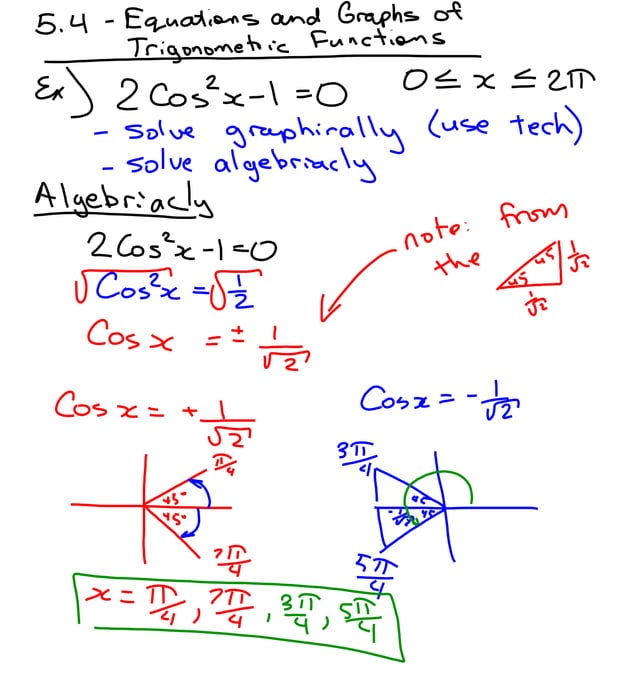 5.4 - Equations and Graphs of
Trigonometric Functions
Ex) 2 Cos²x - 1 = 0 0 ≤ x ≤ 2π
- solve graphirally (use tech)
- solve algebriacly
Algebriacly
2 Cos²x - 1 = 0
√Cos²x = √1/2
note: from
the
45 45 1/√2
1/√2
Cos x = ± 1/√2
Cos x = + 1/√2
Cos x = - 1/√2
π/4
45°
45°
7π/4
3π/4
45
-1/√2 45
5π/4
x = π/4, 7π/4, 3π/4, 5π/4